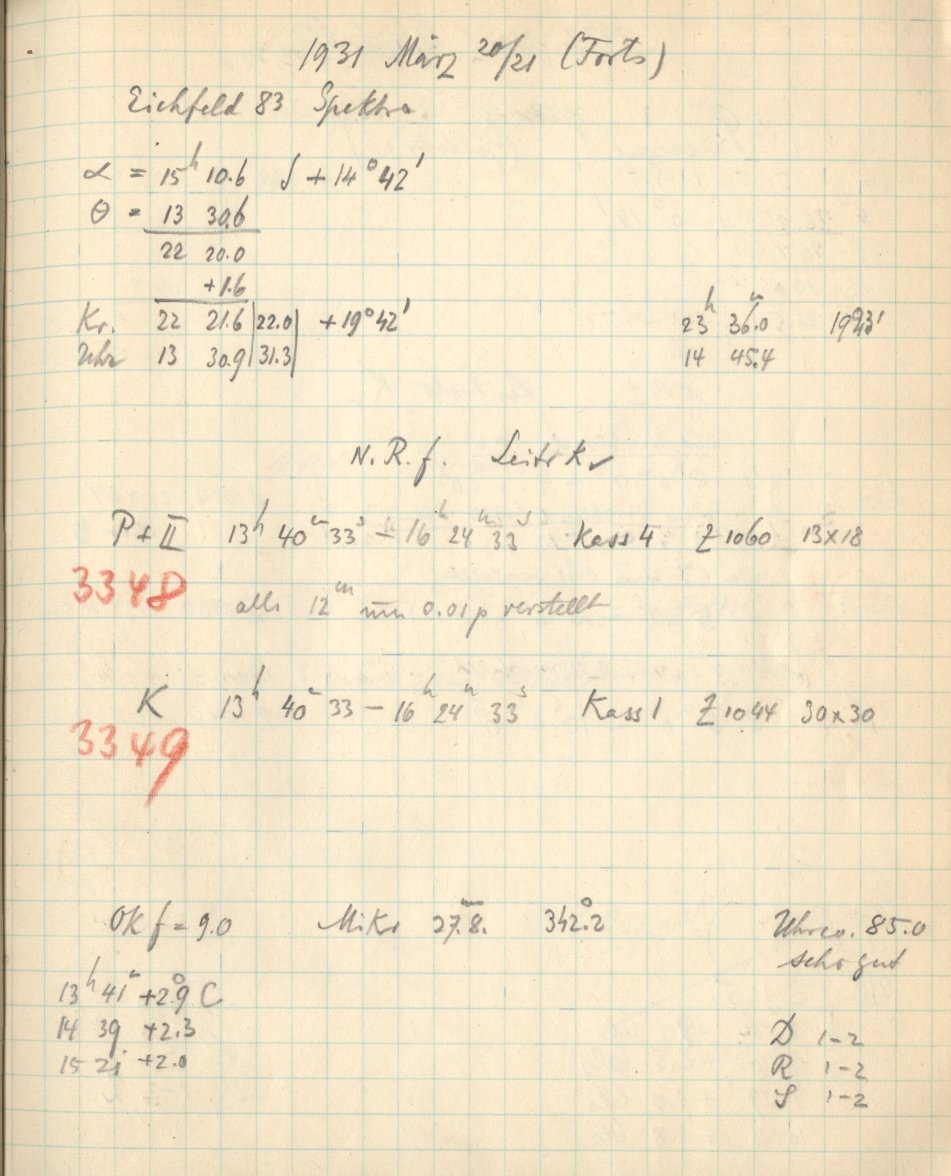 1931 März 20/21 (Forts)
Eichfeld 83 Spektra
α = 15ʰ 10.6 δ + 14° 42'
θ = 13 30.6
22 20.0
+1.6
Kr. 22 21.6 |22.0| +19° 42' 23ʰ 36.0ᵐ
Uhr 13 30.9 |31.3| 14 45.4
N.R.f. Leitr K
P + II 13ʰ 40ᵐ 33ˢ – 16ʰ 24ᵐ 33ˢ Kass 4 Z 1060 13x18
3348 alle 12ᵐ um 0.01 p verstellt
K 13ʰ 40ᵐ 33 – 16ʰ 24ᵐ 33ˢ Kass 1 Z 1044 30x30
3349
Ok f = 9.0 Mikr 27.8. 342.°2 Uhrco. 85.0
sehr gut
13ʰ 41ᵐ +2.°9 C
14 39 +2.3
15 21 +2.0
D 1-2
R 1-2
S 1-2